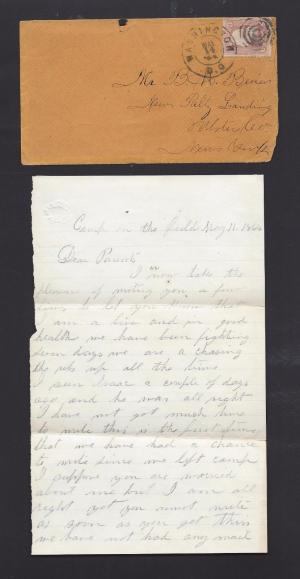 WASHINGTON
D.C.
Mr B. R.
New Paltz Landing
Ulster Co
New York
Camp in the field May 11. 1864
Dear Parents
I now take the
pleasure of writing you a few
lines to let you know that
I am a live and in good
health we have been fighting
seven days we are a chasing
the rebs up all the time
I seen Isaac a couple of days
ago, and he was all right
I have not got much time
to write this is the first time
that we have had a chance
to write since we left camp
I suppose you are worried
about me but I am all
right yet you must write
as soon as you get this
we have not had any mail